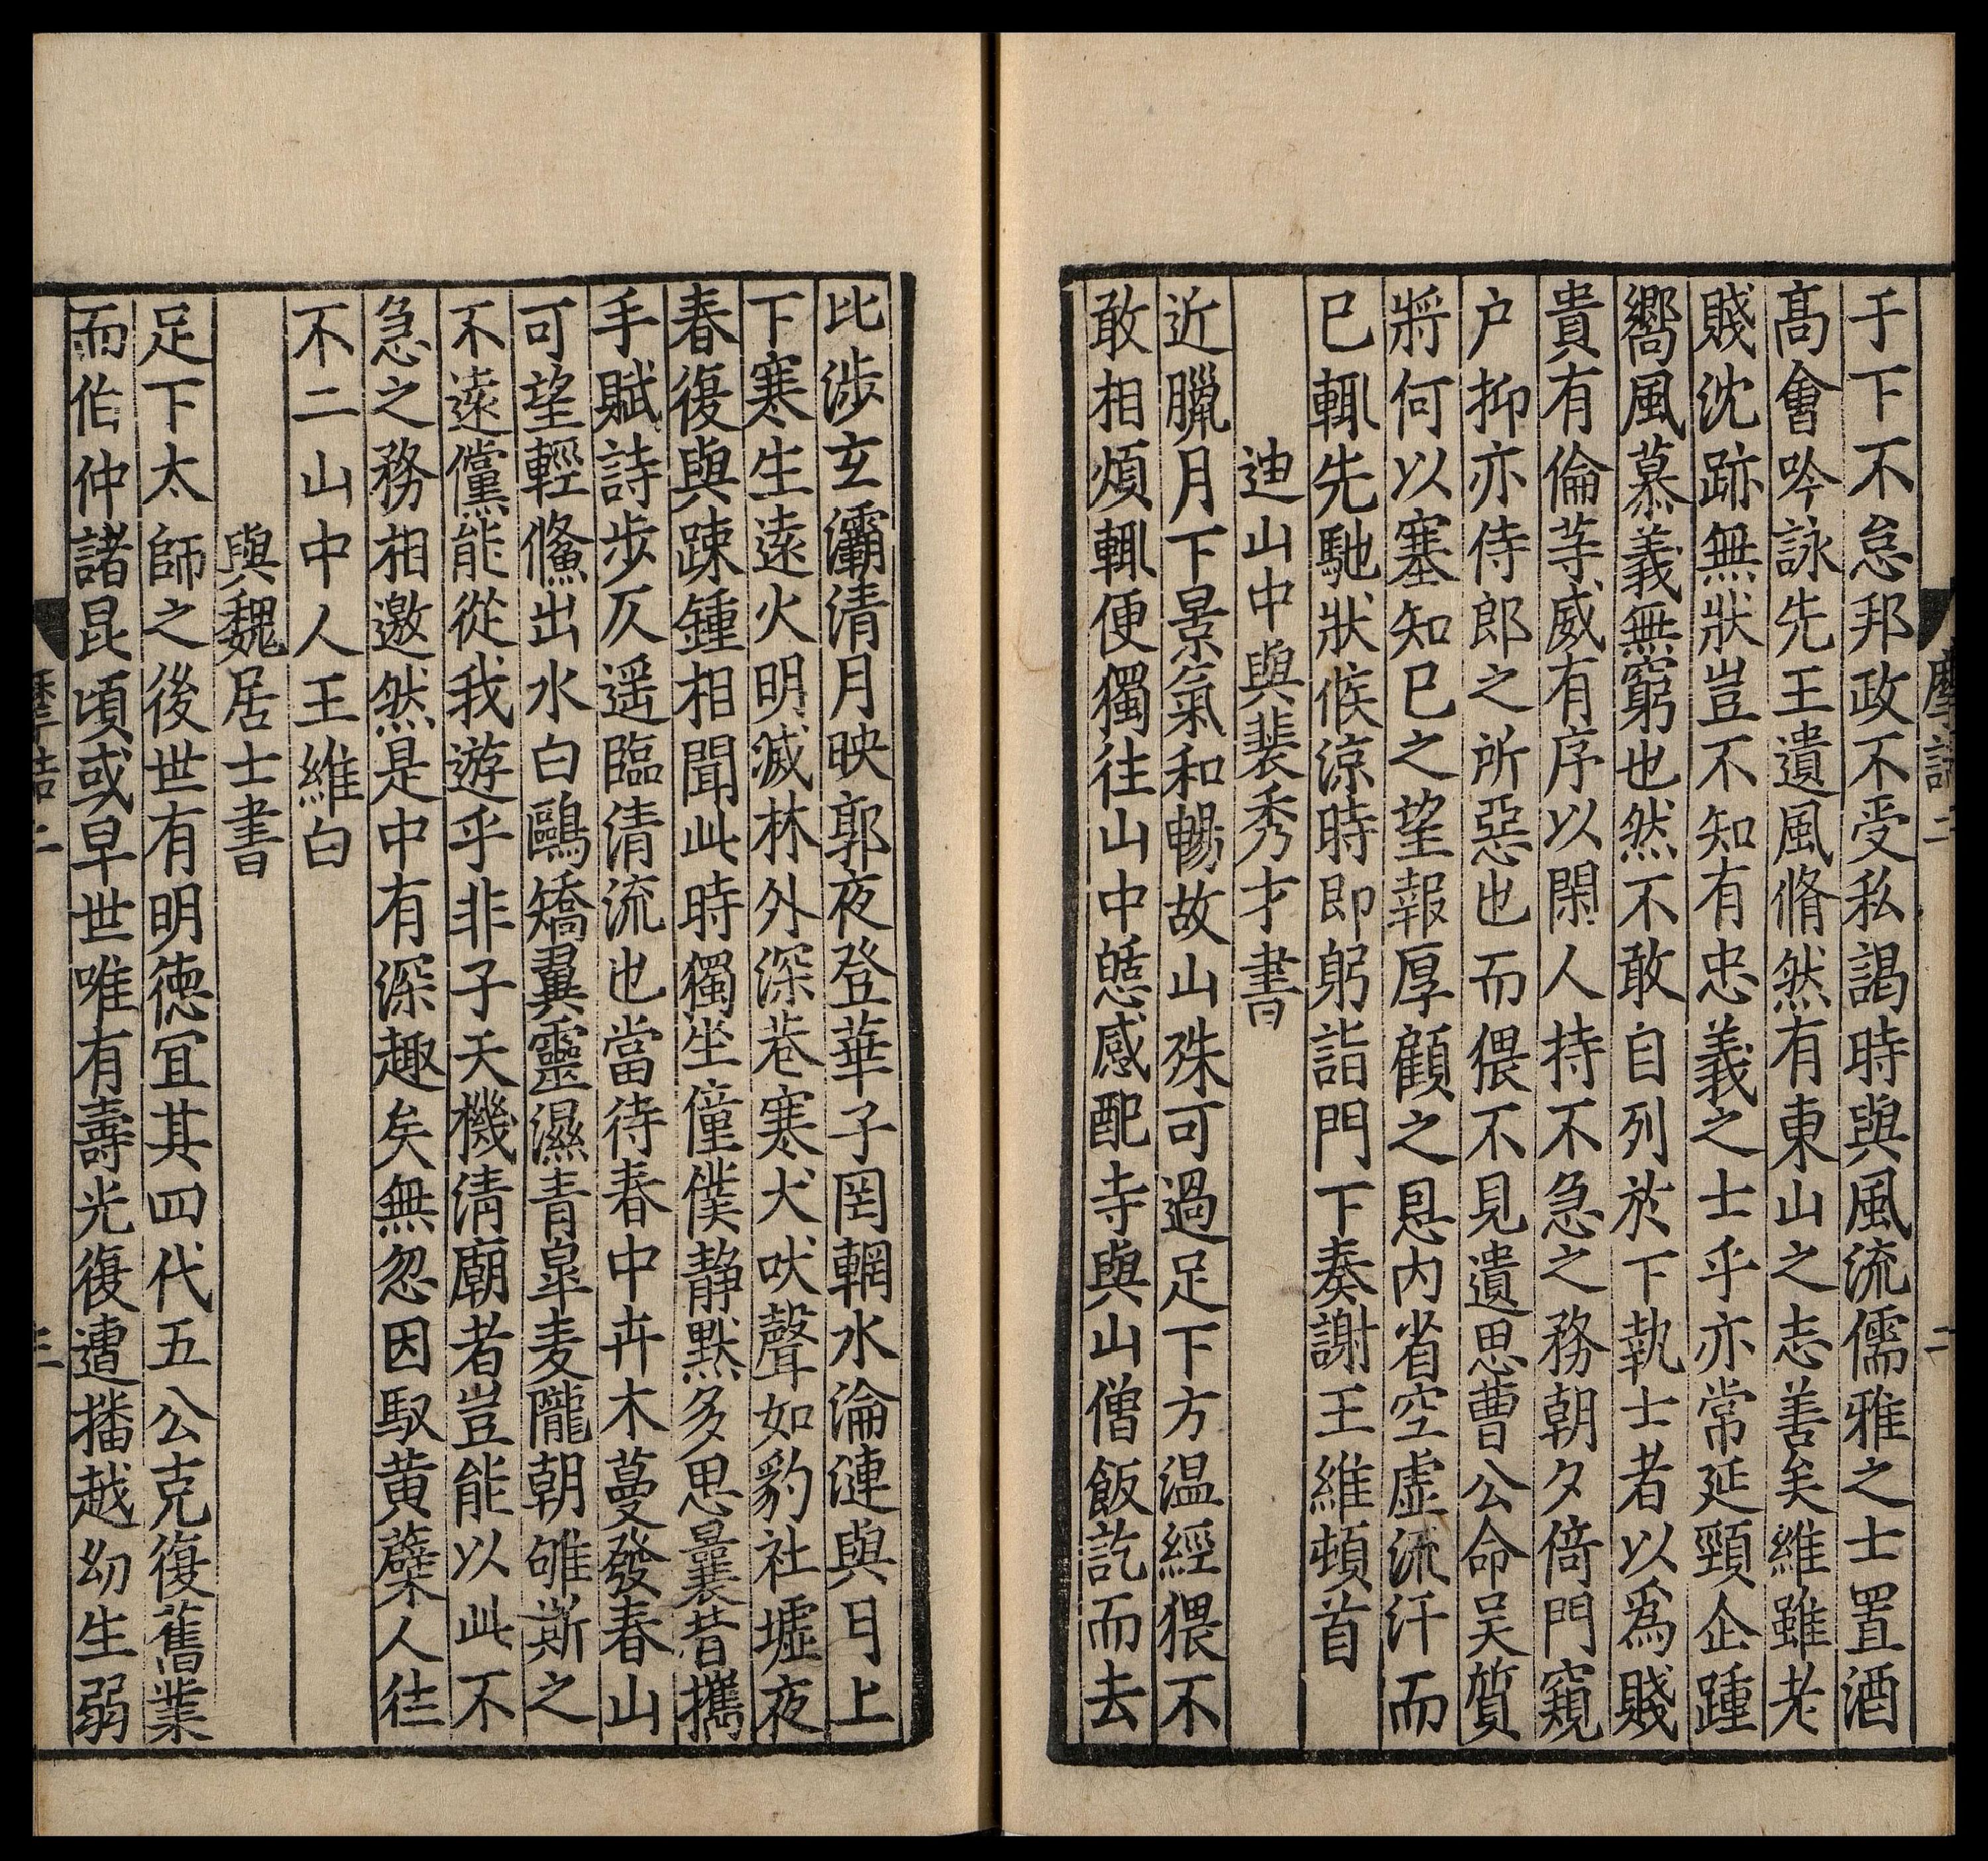 摩詰二
二
于下不怠邦政不受私謁時與風流儒雅之士置酒
髙會吟詠先王遺風翛然有東山之志善矣維雖老
賤沈跡無狀豈不知有忠義之士乎亦常延頸企踵
嚮風慕義無窮也然不敢自列於下執士者以爲賤
貴有倫䓁威有序以閑人持不急之務朝夕倚門窺
户抑亦侍郎之所惡也而猥不見遺思曹公命吴質
將何以塞知已之望報厚顧之恩内省空虚流汗而
已輒先馳狀候涼時即躬詣門下奏謝王維頓首
迪山中與裴秀才書
近臘月下景氣和暢故山殊可過足下方温經猥不
敢相煩輒便獨往山中憇感配寺與山僧飯訖而去
比涉玄灞清月映郭夜登華子罔輞水淪漣與月上
下寒生遠火明滅林外深巷寒犬吠聲如豹社墟夜
春復與踈鍾相聞此時獨坐僮僕静黙多思曩昔攜
手賦詩步仄遥臨清流也當待春中卉木蔓發春山
可望輕鯈出水白鷗矯翼靈濕青臯麦隴朝雊斯之
不遠儻能從我遊乎非子天機清廟者豈能以此不
急之務相邀然是中有深趣矣無忽因馭黄蘗人徃
不二山中人王維白
與魏居士書
足下太師之後世有明德冝其四代五公克復舊業
而伯仲諸昆頃或早世唯有壽光復遭播越幼生弱
摩詰二
三